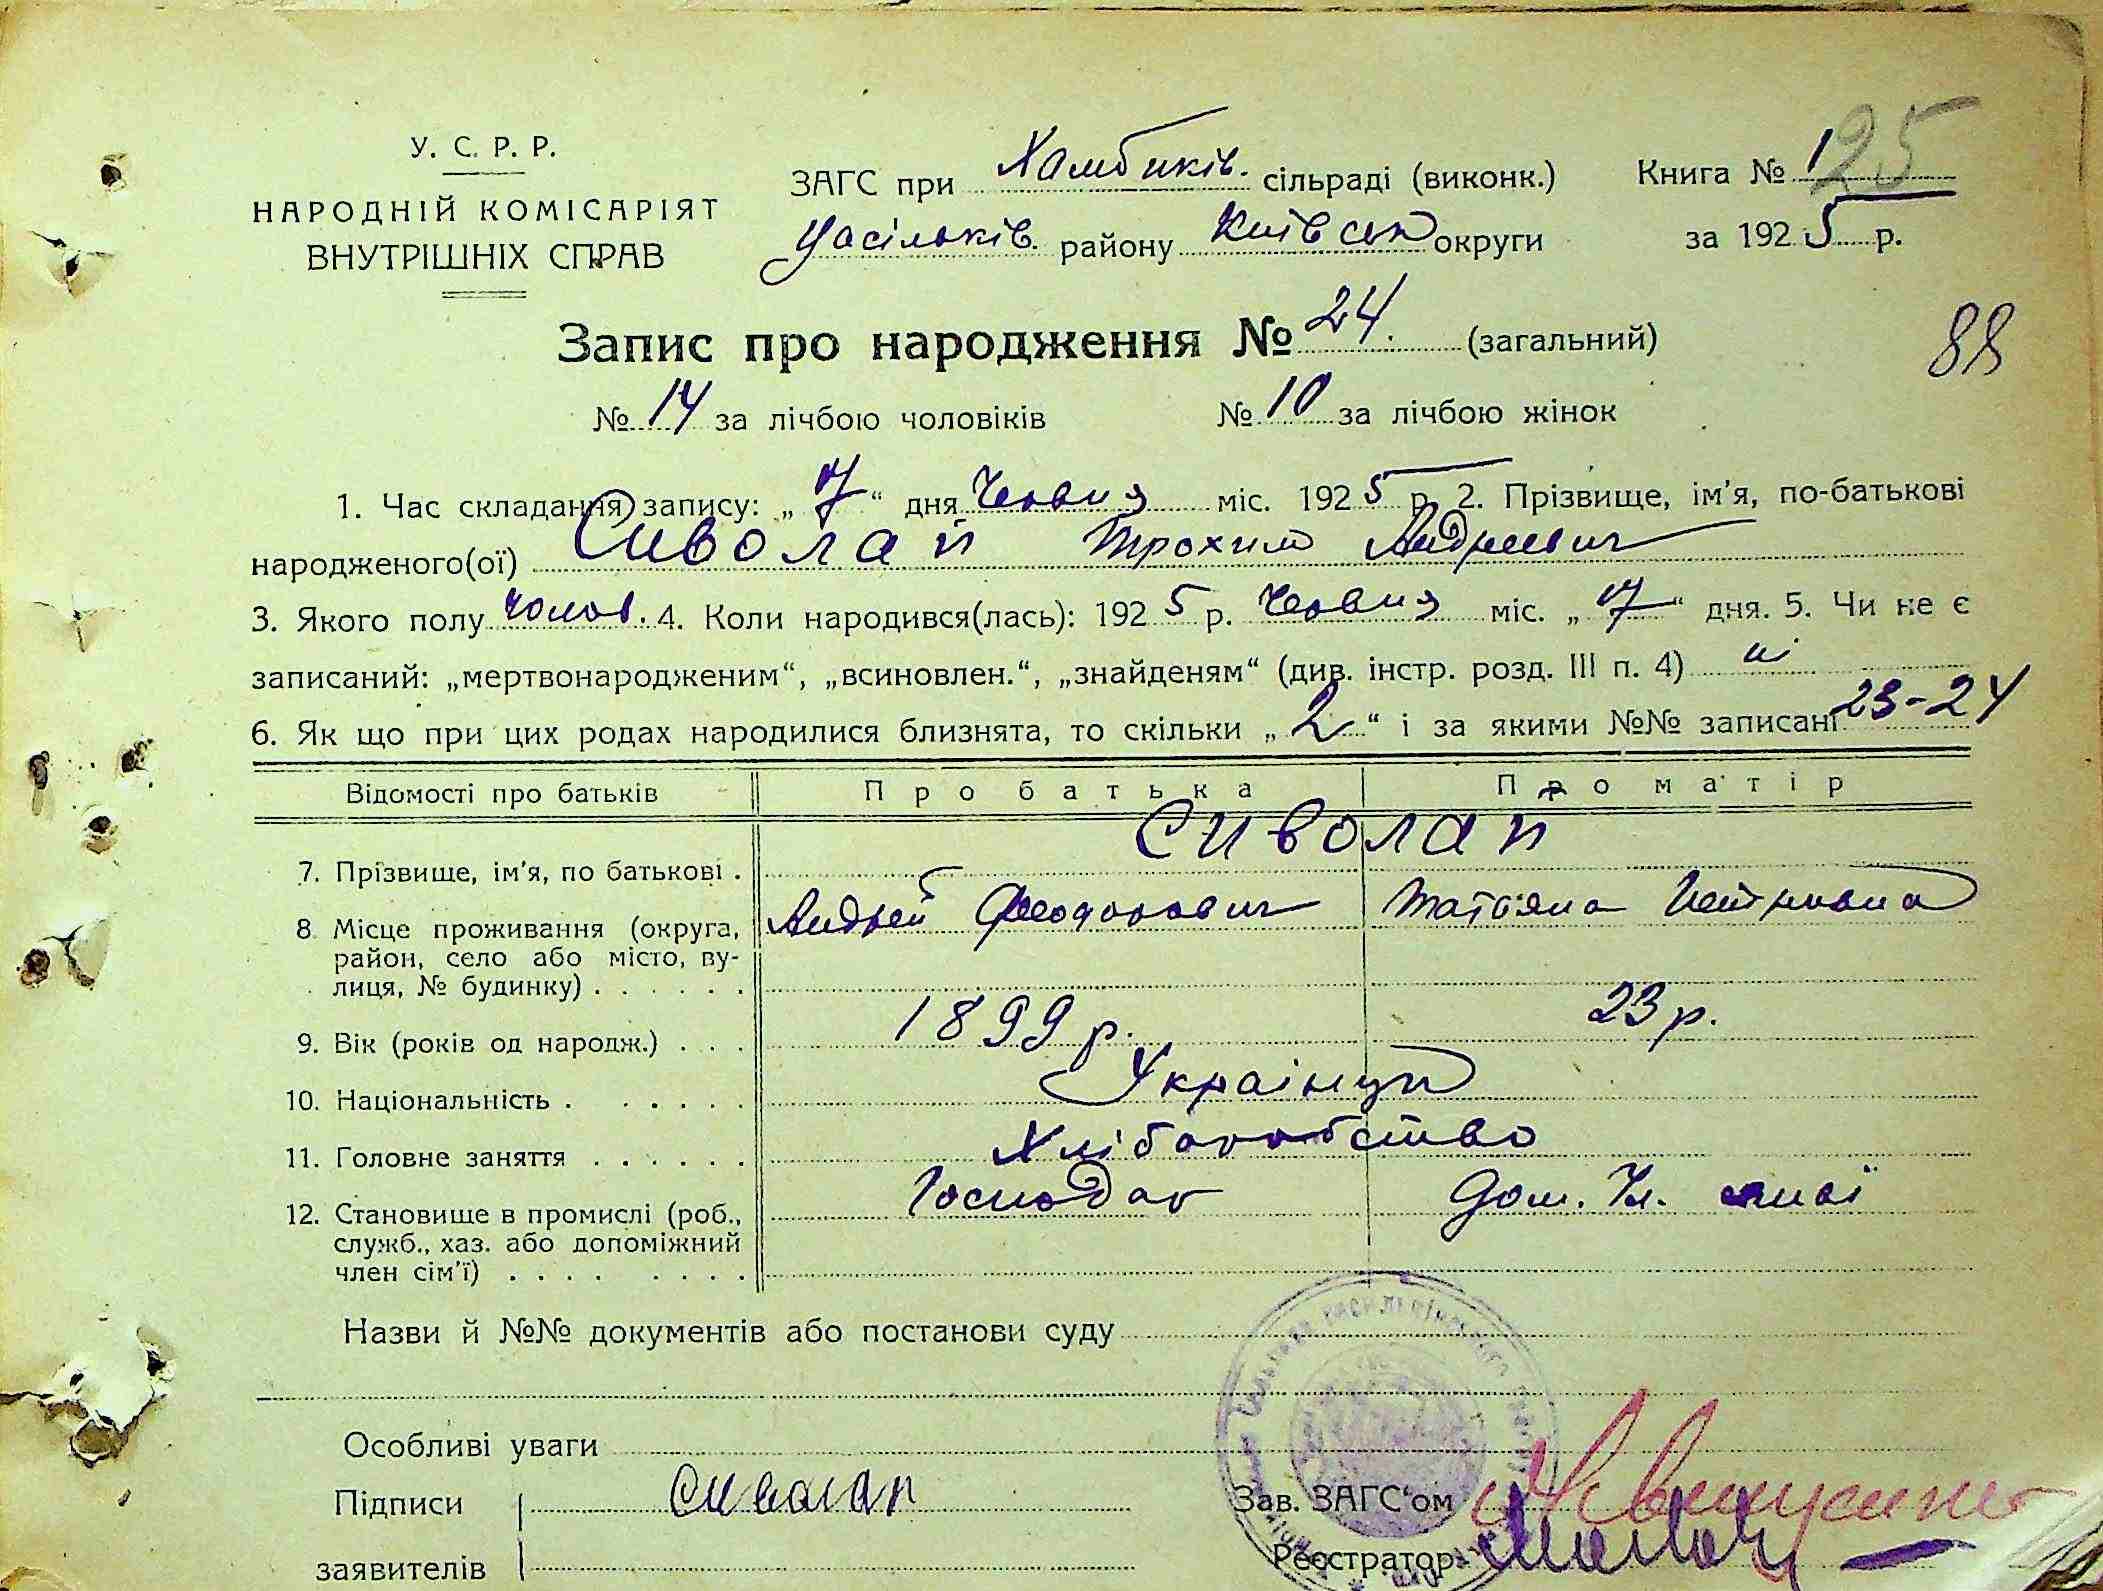 У. С. Р. Р.
НАРОДНІЙ КОМІСАРІЯТ
ВНУТРІШНІХ СПРАВ
ЗАГС при Хамбиків. сільраді (виконк.)
Васільків. району Київськ округи
Книга № 1 25
за 1925 р.
Запис про народження № 24. (загальний)
88
№ 14 за лічбою чоловіків № 10 за лічбою жінок
1. Час складання запису: „7“ дня Червня міс. 1925 р. 2. Прізвище, ім'я, по-батькові
народженого(ої) Сиволап Трохим Андреевич
3. Якого полу чолов. 4. Коли народився(лась): 1925 р. Червня міс. „7“ дня. 5. Чи не є
записаний: „мертвонародженим“, „всиновлен.“, „знайденям“ (див. інстр. розд. III п. 4) ні
6. Як що при цих родах народилися близнята, то скільки „2“ і за якими №№ записані 23-24
Відомості про батьків Про батька Про матір
Сиволап
7. Прізвище, ім'я, по батькові .
Андрей Феодорович Татьяна Петровна
8. Місце проживання (округа,
район, село або місто, ву-
лиця, № будинку) . . . . . .
9. Вік (років од народж.) . . . 1899 р. 23 р.
10. Національність . . . . . . Українци
11. Головне заняття . . . . . . Хліборобство
12. Становище в промислі (роб.,
служб., хаз. або допоміжний
член сім'ї) . . . . . . . .
Господар Дом. Чл.
Назви й №№ документів або постанови суду
Особливі уваги
Підписи Сиволап
заявителів
Зав. ЗАГС'ом
Реєстратор